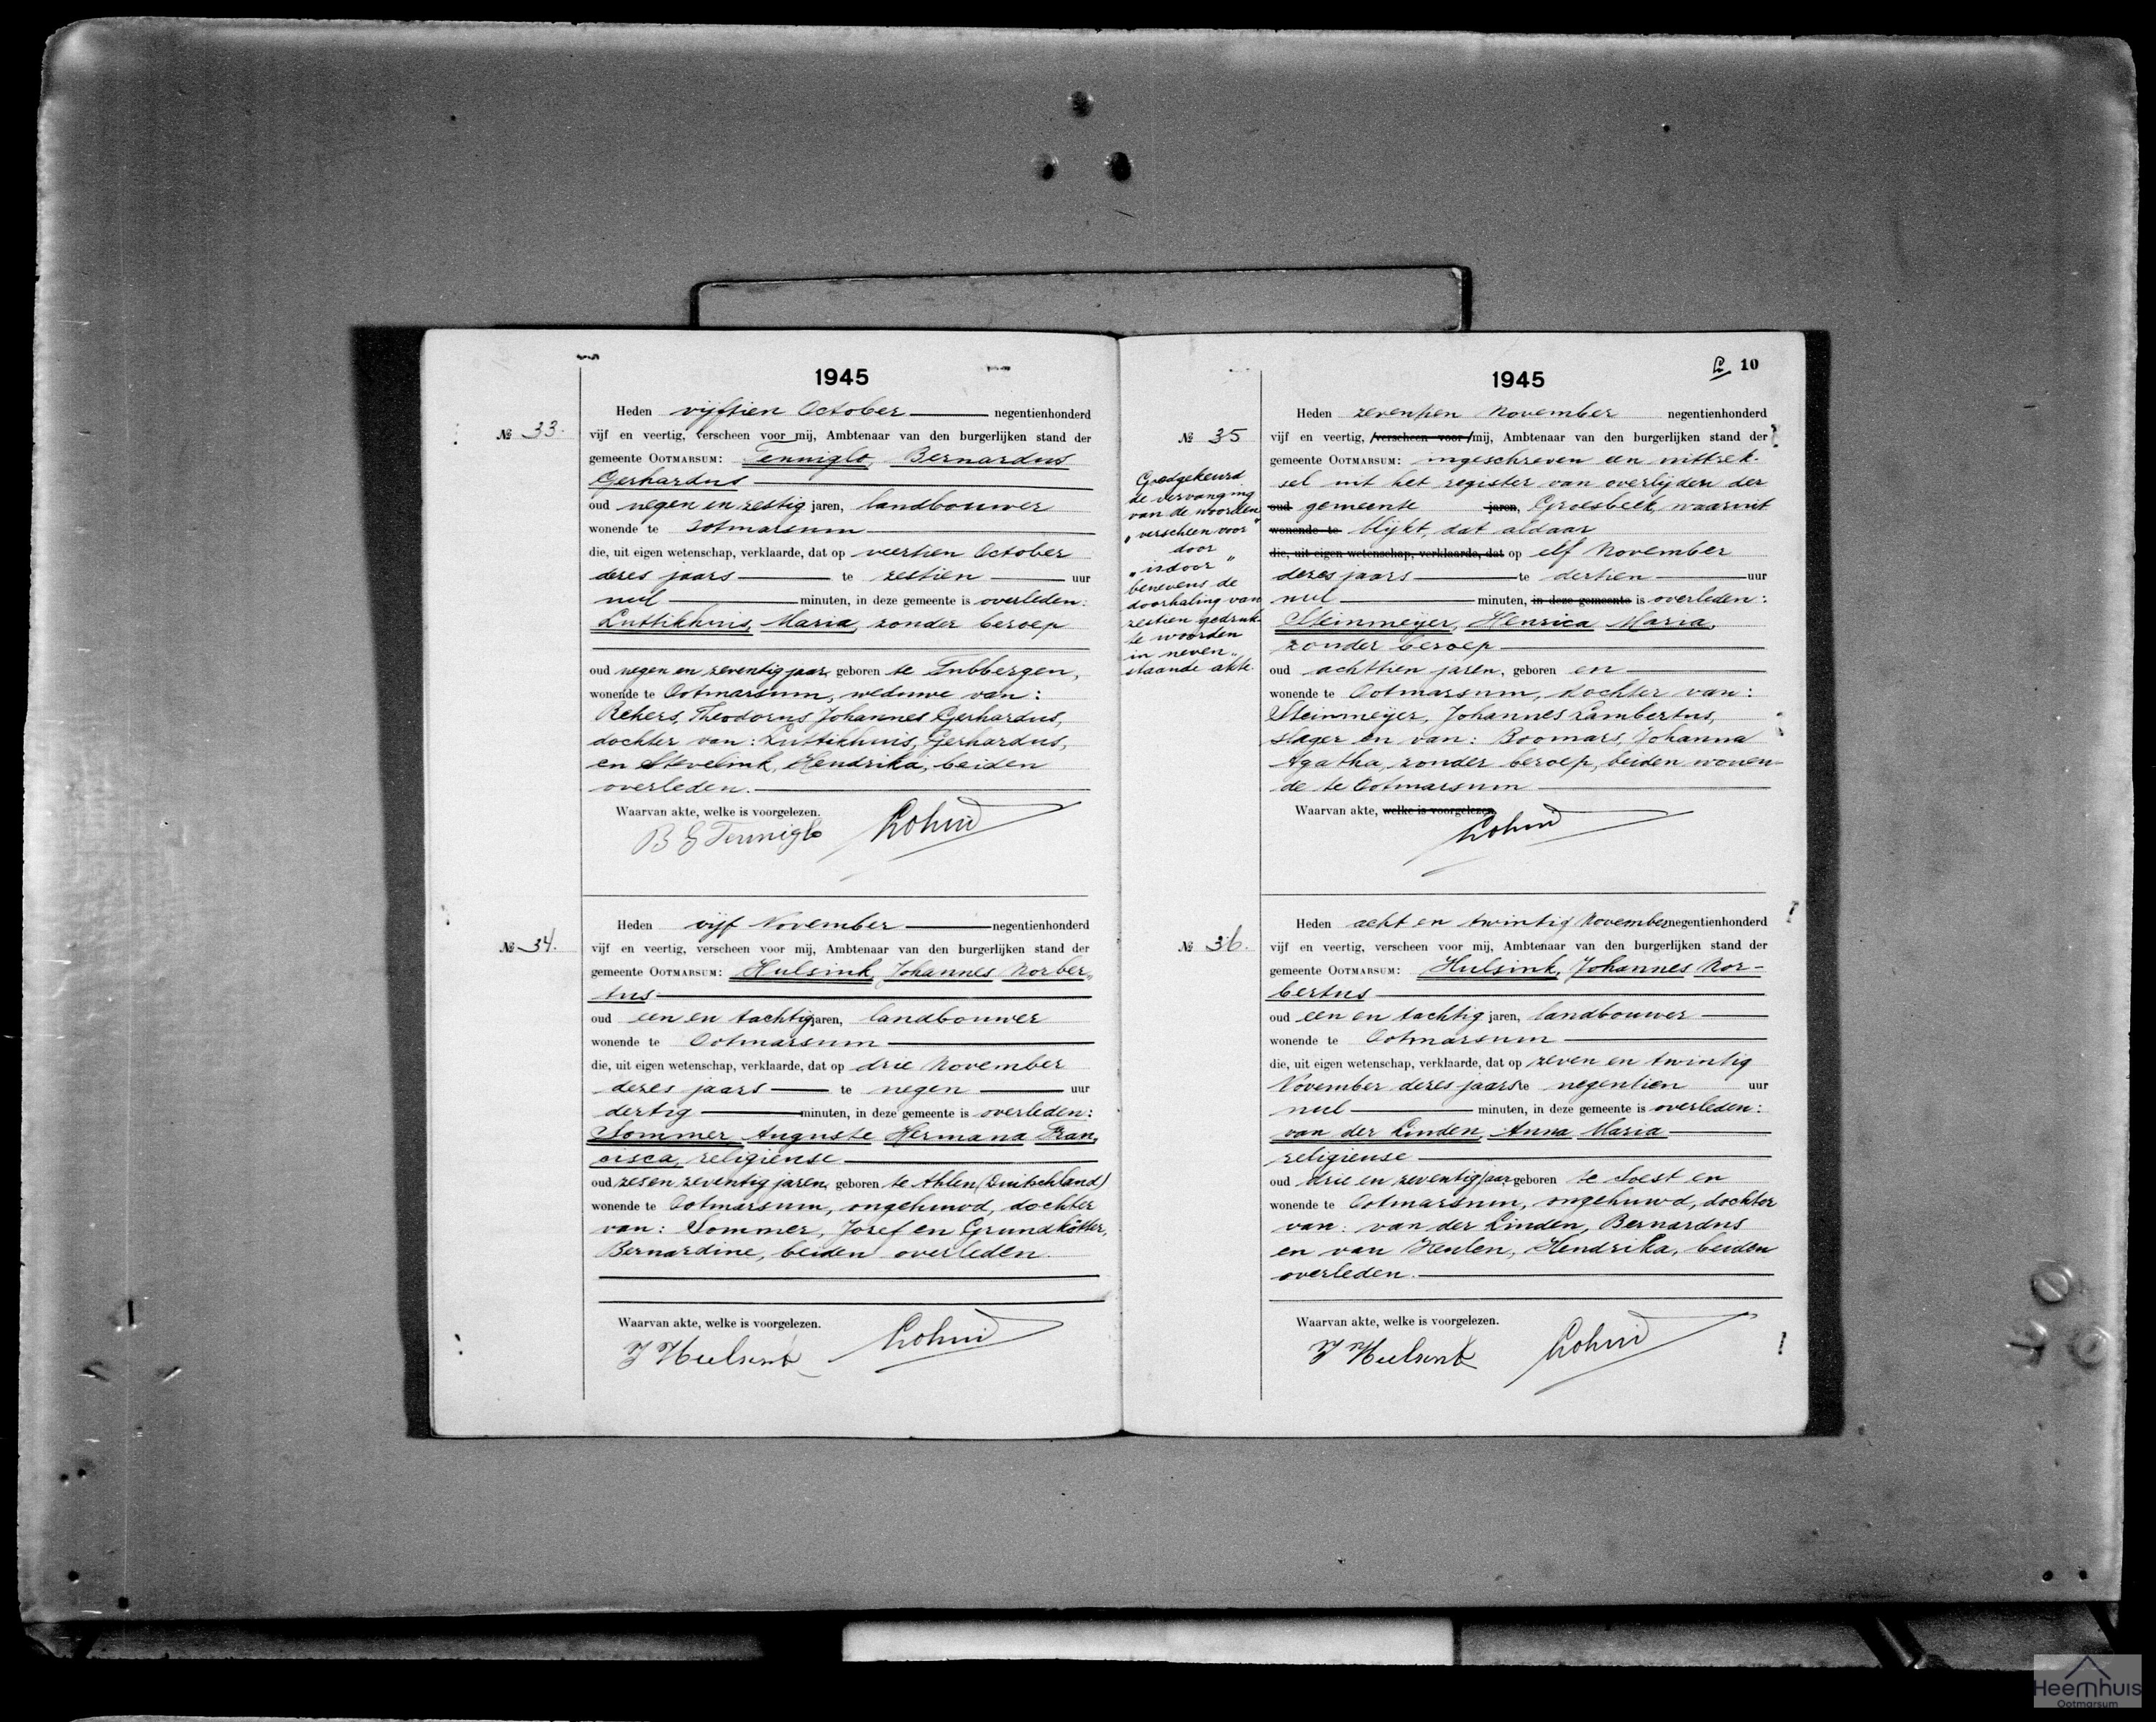 1945
№ 33.
Heden vijftien October negentienhonderd
vijf en veertig, verscheen voor mij, Ambtenaar van den burgerlijken stand der
gemeente OOTMARSUM: Tenniglo, Bernardus
Gerhardus
oud negen en zestig jaren, landbouwer
wonende te Ootmarsum
die, uit eigen wetenschap, verklaarde, dat op veertien October
dezes jaars te zestien uur
nul minuten, in deze gemeente is overleden:
Luttikhuis, Maria, zonder beroep
oud negen en zeventig jaar, geboren te Tubbergen,
wonende te Ootmarsum, weduwe van:
Rehers, Theodorus Johannes Gerhardus,
dochter van: Luttikhuis, Gerhardus,
en Stevelink, Hendrika, beiden
overleden.
Waarvan akte, welke is voorgelezen.
B G Tenniglo
№ 34.
Heden vijf November negentienhonderd
vijf en veertig, verscheen voor mij, Ambtenaar van den burgerlijken stand der
gemeente OOTMARSUM: Hulsink, Johannes Norber„
tus
oud een en tachtig jaren, landbouwer
wonende te Ootmarsum
die, uit eigen wetenschap, verklaarde, dat op drie November
dezes jaars te negen uur
dertig minuten, in deze gemeente is overleden:
Sommer, Auguste Hermana Fran„
cisca, religieuse
oud zes en zeventig jaren, geboren te Ahlen (Duitschland)
wonende te Ootmarsum, ongehuwd, dochter
van: Sommer, Josef en Grundkötter,
Bernardine, beiden overleden.
Waarvan akte, welke is voorgelezen.
J Hulsink
1945
10
№ 35
Goedgekeurd
de vervanging
van de woorden
„verscheen voor"
door
„is door"
benevens de
doorhaling van
zestien gedruk-
te woorden
in neven„
staande akte.
Heden zeventien November negentienhonderd
vijf en veertig, verscheen voor mij, Ambtenaar van den burgerlijken stand der
gemeente OOTMARSUM: ingeschreven een uittrek-
sel uit het register van overlijden der
oud gemeente jaren, Groesbeek, waaruit
wonende te blijkt, dat aldaar
die, uit eigen wetenschap, verklaarde, dat op elf November
dezes jaars te dertien uur
nul minuten, in deze gemeente is overleden:
Steinmeijer, Henrica Maria,
zonder beroep
oud achttien jaren, geboren en
wonende te Ootmarsum, dochter van:
Steinmeijer, Johannes Lambertus,
slager en van: Boomars, Johanna
Agatha, zonder beroep, beiden wonen-
de te Ootmarsum
Waarvan akte, welke is voorgelezen.
№ 36.
Heden acht en twintig November negentienhonderd
vijf en veertig, verscheen voor mij, Ambtenaar van den burgerlijken stand der
gemeente OOTMARSUM: Hulsink, Johannes Nor-
bertus
oud een en tachtig jaren, landbouwer
wonende te Ootmarsum
die, uit eigen wetenschap, verklaarde, dat op zeven en twintig
November dezes jaars te negentien uur
nul minuten, in deze gemeente is overleden:
van der Linden, Anna Maria
religieuse
oud drie en zeventig jaar, geboren te Soest en
wonende te Ootmarsum, ongehuwd, dochter
van: van der Linden, Bernardus
en van Keulen, Hendrika, beiden
overleden.
Waarvan akte, welke is voorgelezen.
J Hulsink
Heemhuis
Ootmarsum